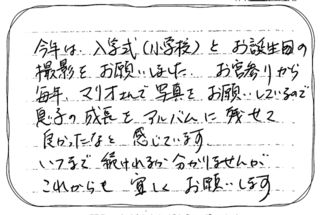 今年は、入学式(小学校)と お誕生日の
撮影を お願いしました。 お宮参りから
毎年、マリオさんで写真を お願いしているので
息子の成長を アルバムに 残せて
良かったなと 感じています
いつまで 続けれるか 分かりませんが
これからも 宜しく お願いします